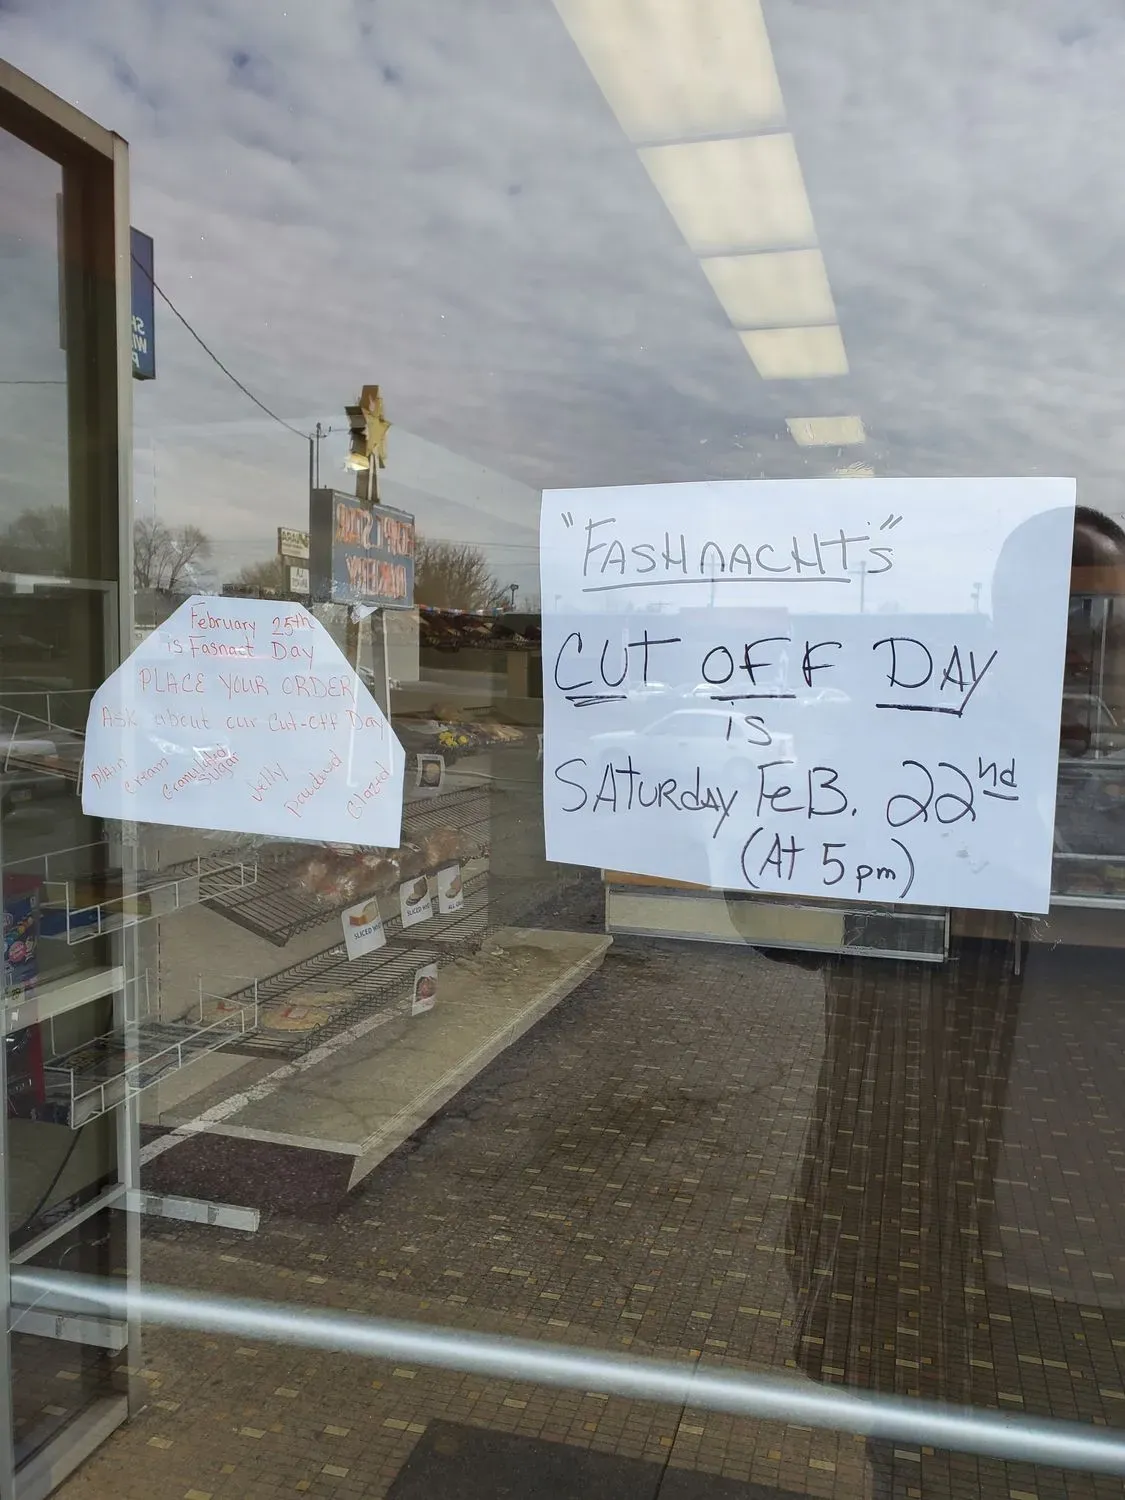 February 25th
is Fasnact Day
PLACE YOUR ORDER
Ask about our Cut-off Day
Plain
Cream
Granulated
Sugar
Jelly
Powdered
Glazed
"FASHNACHT'S"
CUT OFF DAY
is
SATURDAY FEB. 22nd
(At 5pm)
SLICED
SLICED